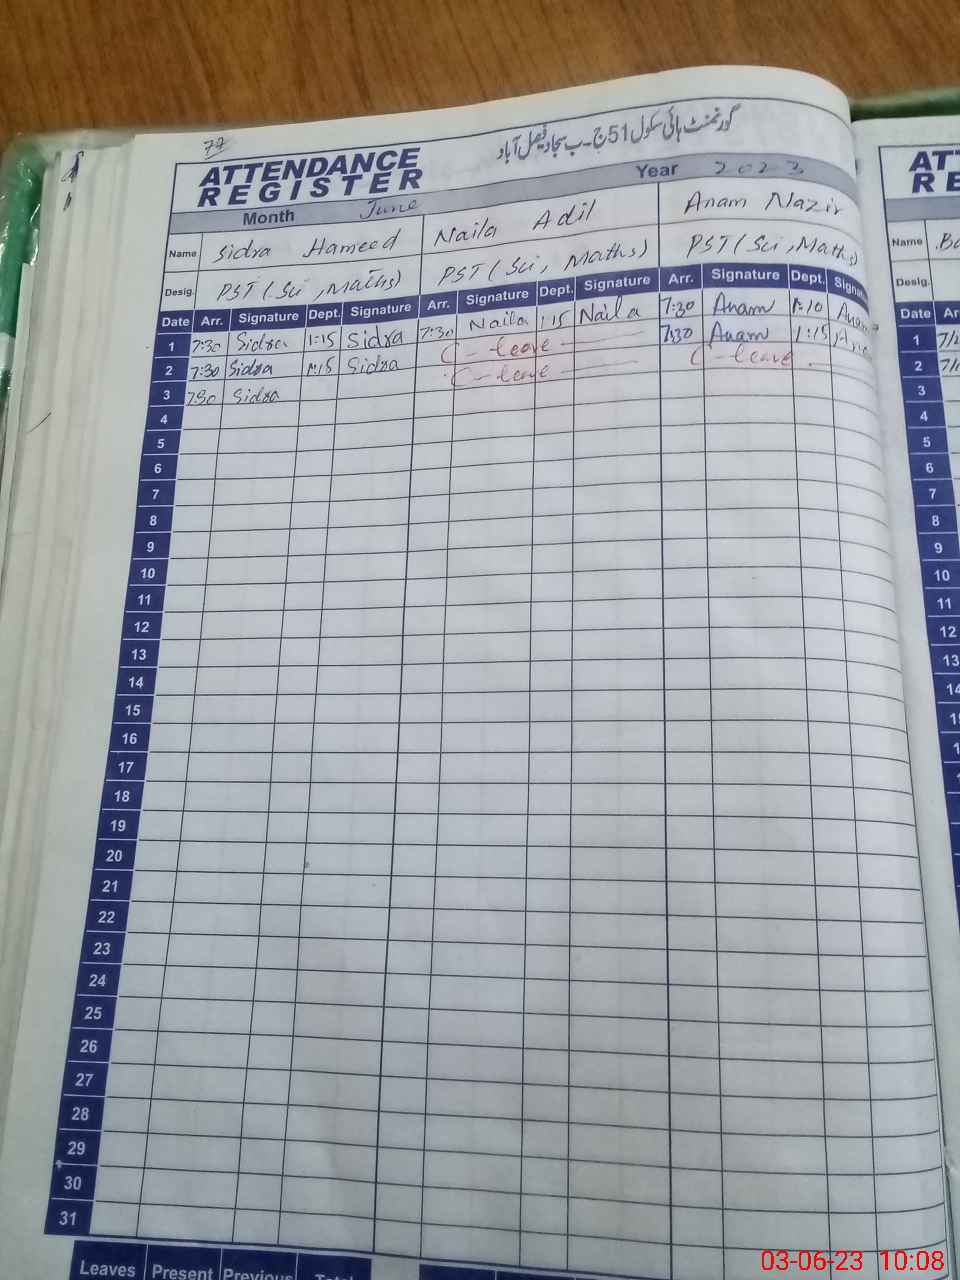 77
گورنمنٹ ہائی سکول 51 ج۔ب سجاد فیصل آباد
ATTENDANCE
REGISTER
Month June Year 2023
Name Sidra Hameed Naila Adil Anam Nazir
Desig. PST (Sci, Maths) PST (Sci, Maths) PST (Sci, Maths)
Date Arr. Signature Dept. Signature Arr. Signature Dept. Signature Arr. Signature Dept.
1 7:30 Sidra 1:15 Sidra 7:30 Naila 1:15 Naila 7:30 Anam 1:10 Anam
2 7:30 Sidra 1:15 Sidra C - leave 7:30 Anam 1:15
3 7:30 Sidra C - leave C - leave
4
5
6
7
8
9
10
11
12
13
14
15
16
17
18
19
20
21
22
23
24
25
26
27
28
29
30
31
Leaves Present Previous Total
Name
Desig.
Date
1
2
3
4
5
6
7
8
9
10
11
12
13
03-06-23 10:08